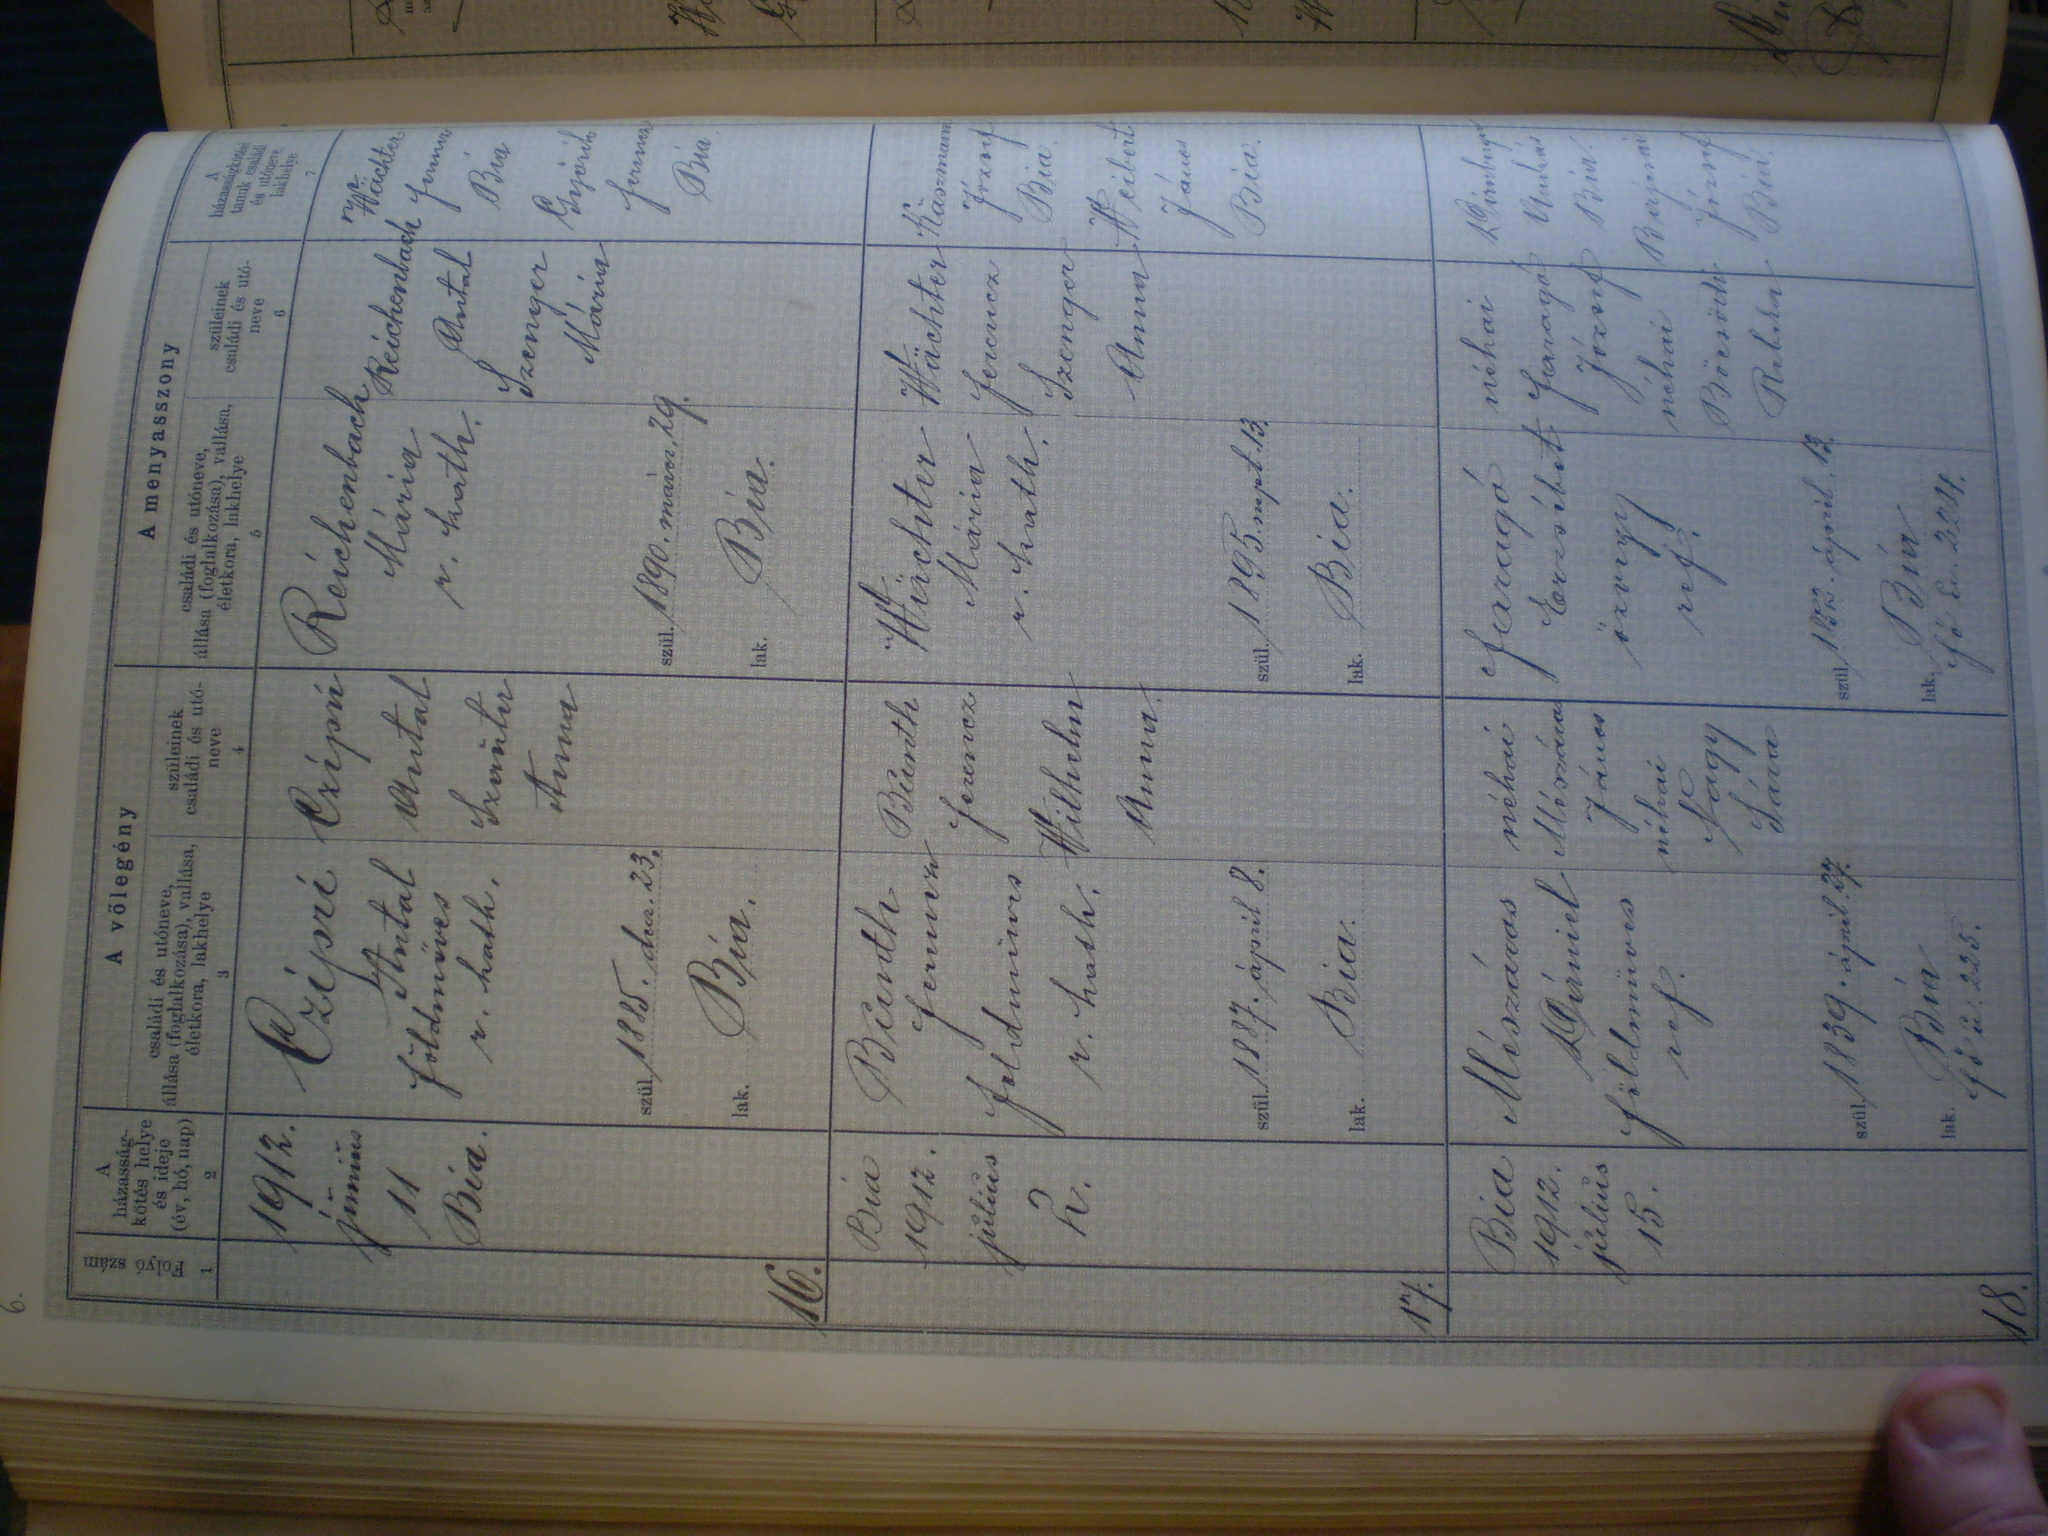 6.
Folyó szám
A
házasság-
kötés helye
és ideje
(év, hó, nap)
A vőlegény
családi és utóneve,
állása (foglalkozása), vallása,
életkora, lakhelye
szüleinek
családi és utó-
neve
A menyasszony
családi és utóneve,
állása (foglalkozása), vallása,
életkora, lakhelye
szüleinek
családi és utó-
neve
A
házasságkötési
tanuk családi
és utóneve,
lakhelye
1
2
3
4
5
6
7
16.
1912.
június
11
Bia.
Czípri
Antal
földműves
r. kath.
szül. 1885. dec. 23.
lak. Bia.
Czípri
Antal
Anna
Reichenbach
Mária
r. kath.
szül. 1890. márcz. 29.
lak. Bia.
Reichenbach
Antal
Szenger
Mária
Wächter
Ferencz
Bia
Ferencz
Bia.
17.
Bia
1912.
július
2.
Bienth
Ferencz
földmives
r. kath.
szül. 1887. április 8.
lak. Bia.
Bienth
Ferencz
Wilhelm
Anna.
Wächter
Mária
r. kath.
szül. 1895. szept. 13.
lak. Bia.
Wächter
Ferencz
Szenger
Anna
József
Bia.
János
Bia.
18.
Bia
1912.
július
15.
Mészáros
Dániel
földmüves
ref.
szül. 1839. április. 27.
lak. Bia
néhai
Mészáros
János
néhai
Nagy
Sára
Faragó
Erzsébet
özvegy
ref.
szül. április. 13.
lak. Bia
néhai
Faragó
József
néhai
Rebeka
Bia.
József
Bia.